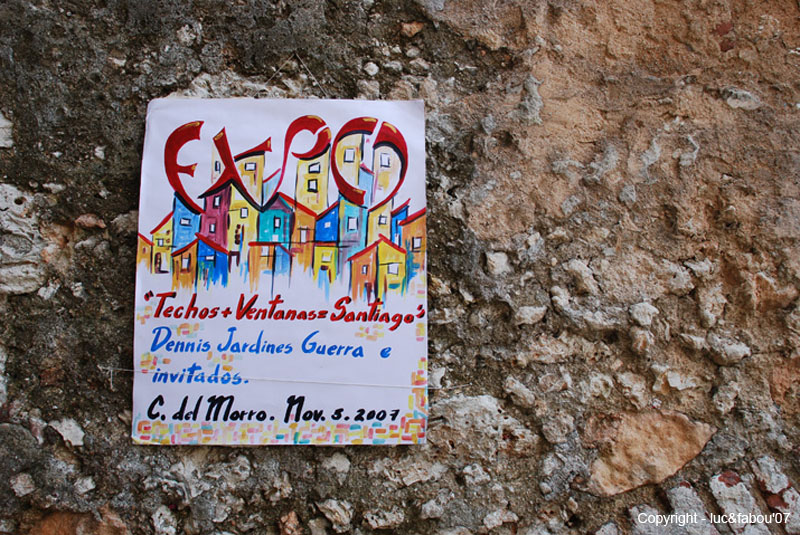 EXPO
"Techos + Ventanas = Santiago"
Dennis Jardines Guerra e
invitados.
C. del Morro. Nov. 3. 2007
Copyright - luc&fabou'07